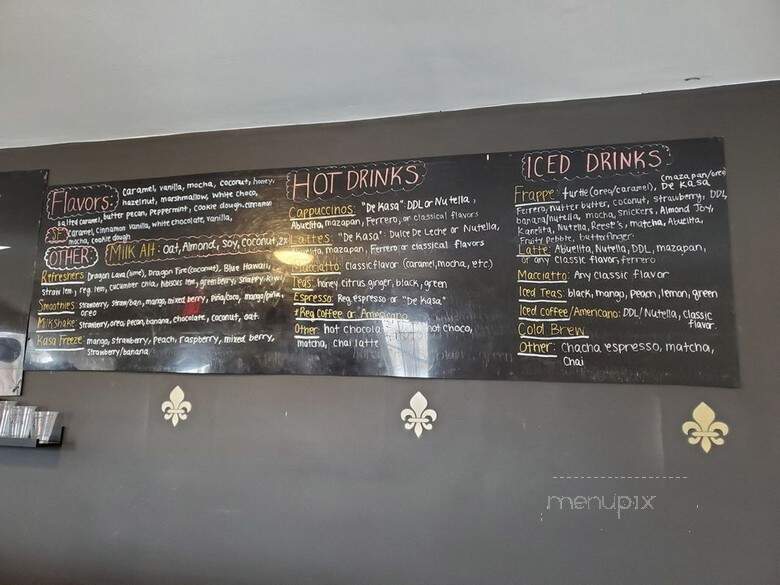 Flavors: caramel, vanilla, mocha, coconut, honey,
hazelnut, marshmallow, white choco,
salted caramel, butter pecan, peppermint, cookie dough, cinnamon
SF caramel, cinnamon vanilla, white chocolate, vanilla,
mocha, cookie dough
OTHER: Milk Alt: oat, Almond, Soy, coconut, 2%
Refreshers Dragon Lava (lime), Dragon Fire (coconut), Blue Hawaii,
straw lem, reg. lem, cucumber chia, hibiscus lem, greenberry, snappy kiwi
Smoothies strawberry, straw/ban, mango, mixed berry, piña/coco, mango/
oreo
Milkshake strawberry, oreo, pecan, banana, chocolate, coconut, oat.
Kasa Freeze mango, strawberry, peach, raspberry, mixed berry,
strawberry/banana
HOT DRINKS
Cappuccinos: "De Kasa": DDL or Nutella,
Abuelita, mazapan, Ferrero, or classical flavors
Lattes: "De Kasa": Dulce De Leche or Nutella,
mazapan, Ferrero or classical flavors
Macciatto classic flavor (caramel, mocha, etc)
Teas: honey citrus ginger, black, green
Espresso: Reg. espresso or "De Kasa"
Reg Coffee or Americano
Other: hot chocolate hot choco,
matcha, chai latte
ICED DRINKS
Frappe: turtle (oreo/caramel), De Kasa (mazapan/oreo
Ferrero, nutter butter, coconut, strawberry, DDL
banana/nutella, mocha, snickers, Almond Joy,
Kanelita, Nutella, Reese's, matcha, Abuelita,
Fruity Pebble, butterfinger.
Latte: Abuelita, Nutella, DDL, mazapan,
or any classic flavor, ferrero
Macciatto: Any classic flavor
Iced Teas: black, mango, peach, lemon, green
Iced coffee/Americano: DDL/Nutella, classic
flavor.
Cold Brew
Other: Chacha espresso, matcha,
Chai
menupix